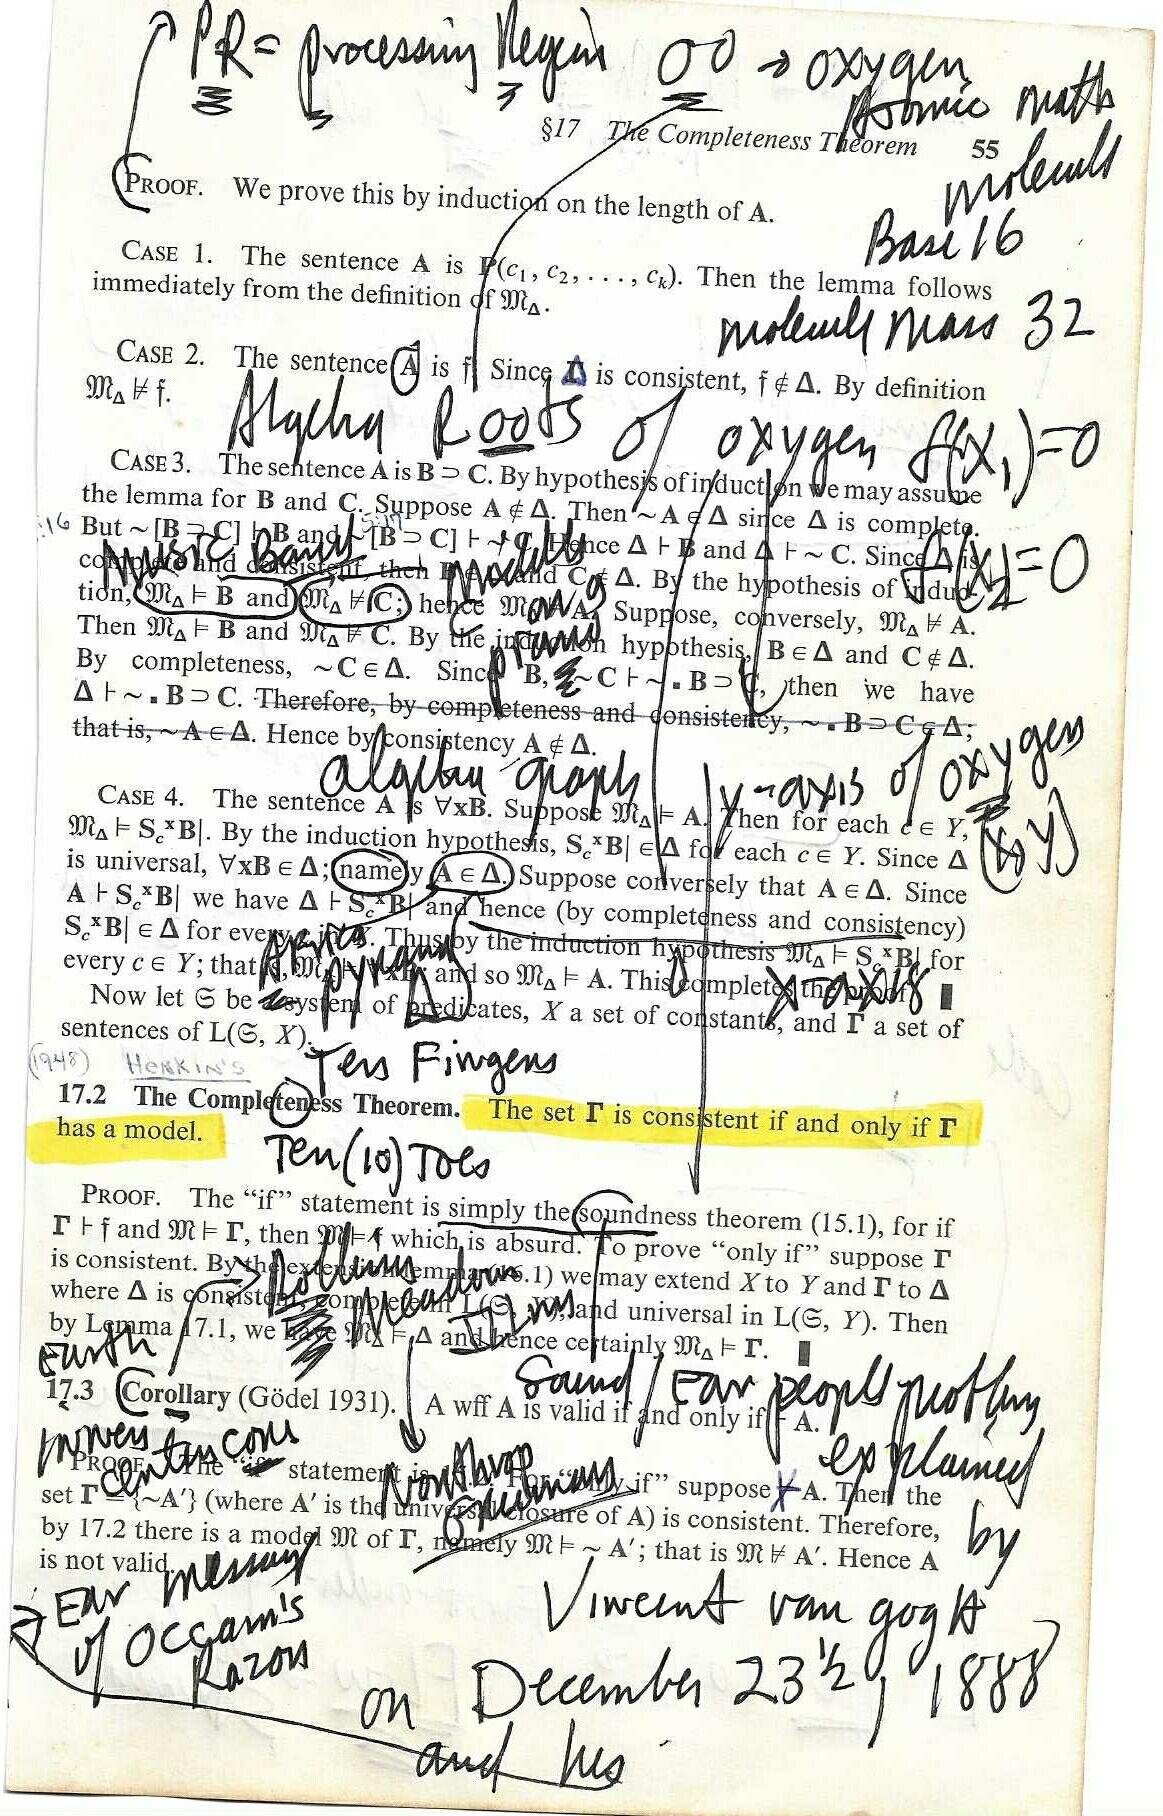 PR = processing Region OO → oxygen
Atomic math
§17 The Completeness Theorem 55
molecule
PROOF. We prove this by induction on the length of A.
Base 16
CASE 1. The sentence A is P(c₁, c₂, . . . , cₖ). Then the lemma follows
immediately from the definition of 𝔐_Δ.
molecule mass 32
CASE 2. The sentence A is f. Since Δ is consistent, f ∉ Δ. By definition
𝔐_Δ ⊭ f.
Algebra Roots of oxygen f(x₁)=0
CASE 3. The sentence A is B ⊃ C. By hypothesis of induction we may assume
the lemma for B and C. Suppose A ∉ Δ. Then ~A ∈ Δ since Δ is complete.
:16 5:17
But ~[B ⊃ C] ⊢ B and ~[B ⊃ C] ⊢ ~C. Hence Δ ⊢ B and Δ ⊢ ~C. Since Δ is
Music Band models f(x₂)=0
complete and consistent, then B and C ∉ Δ. By the hypothesis of induc-
tion, 𝔐_Δ ⊨ B and 𝔐_Δ ⊭ C; hence 𝔐_Δ A. Suppose, conversely, 𝔐_Δ ⊭ A.
piano
Then 𝔐_Δ ⊨ B and 𝔐_Δ ⊭ C. By the induction hypothesis, B ∈ Δ and C ∉ Δ.
By completeness, ~C ∈ Δ. Since B, ~C ⊢ ~ . B ⊃ C, then we have
Δ ⊢ ~ . B ⊃ C. Therefore, by completeness and consistency, ~ . B ⊃ C ∈ Δ;
that is, ~A ∈ Δ. Hence by consistency A ∉ Δ.
algebra graph y-axis of oxygen
(x,y)
CASE 4. The sentence A is ∀xB. Suppose 𝔐_Δ ⊨ A. Then for each c ∈ Y,
𝔐_Δ ⊨ S_c^x B|. By the induction hypothesis, S_c^x B| ∈ Δ for each c ∈ Y. Since Δ
is universal, ∀xB ∈ Δ; namely A ∈ Δ. Suppose conversely that A ∈ Δ. Since
A ⊢ S_c^x B| we have Δ ⊢ S_c^x B| and hence (by completeness and consistency)
S_c^x B| ∈ Δ for every Y. Thus by the induction hypothesis 𝔐_Δ ⊨ S_c^x B| for
Africa pyramid Δ x-axis
every c ∈ Y; that is, 𝔐_Δ ⊨ ∀xB; and so 𝔐_Δ ⊨ A. This completes the proof. ▮
Now let 𝔖 be a system of predicates, X a set of constants, and Γ a set of
sentences of L(𝔖, X).
(1948) HENKIN'S Ten Fingers
17.2 The Completeness Theorem. The set Γ is consistent if and only if Γ
has a model.
Ten (10) Toes
PROOF. The “if” statement is simply the soundness theorem (15.1), for if
Γ ⊢ f and 𝔐 ⊨ Γ, then 𝔐 ⊨ f which is absurd. To prove “only if” suppose Γ
is consistent. By the extension lemma (16.1) we may extend X to Y and Γ to Δ
Rolling Meadows Illinois
where Δ is consistent, complete in L(𝔖, Y), and universal in L(𝔖, Y). Then
by Lemma 17.1, we have 𝔐_Δ ⊨ Δ and hence certainly 𝔐_Δ ⊨ Γ. ▮
Earth
Sound / Ear people problem
17.3 Corollary (Gödel 1931). A wff A is valid if and only if ⊢ A.
explained
centers core
Northrop Grumman
PROOF. The “if” statement is “only if” suppose ⊬ A. Then the
set Γ = {~A′} (where A′ is the universal closure of A) is consistent. Therefore,
by
by 17.2 there is a model 𝔐 of Γ, namely 𝔐 ⊨ ~ A′; that is 𝔐 ⊭ A′. Hence A
is not valid.
→ Ear message
of Occam's
Razon
Vincent van gogH
on December 23 ½, 1888
and his